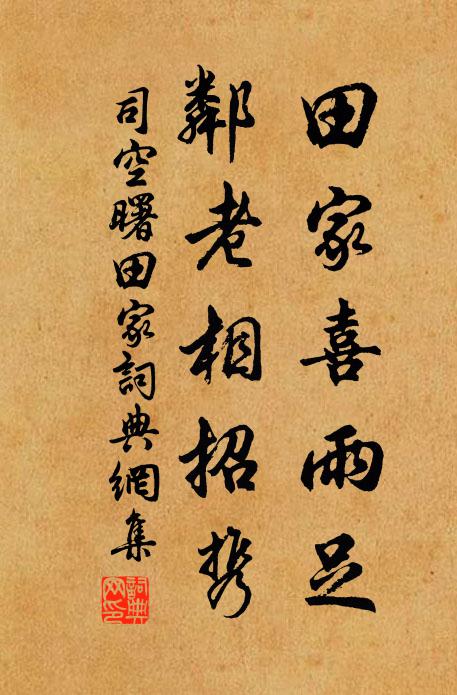 田家喜雨足
鄰老相招携
司空曙田家詞典網集
詞典网印